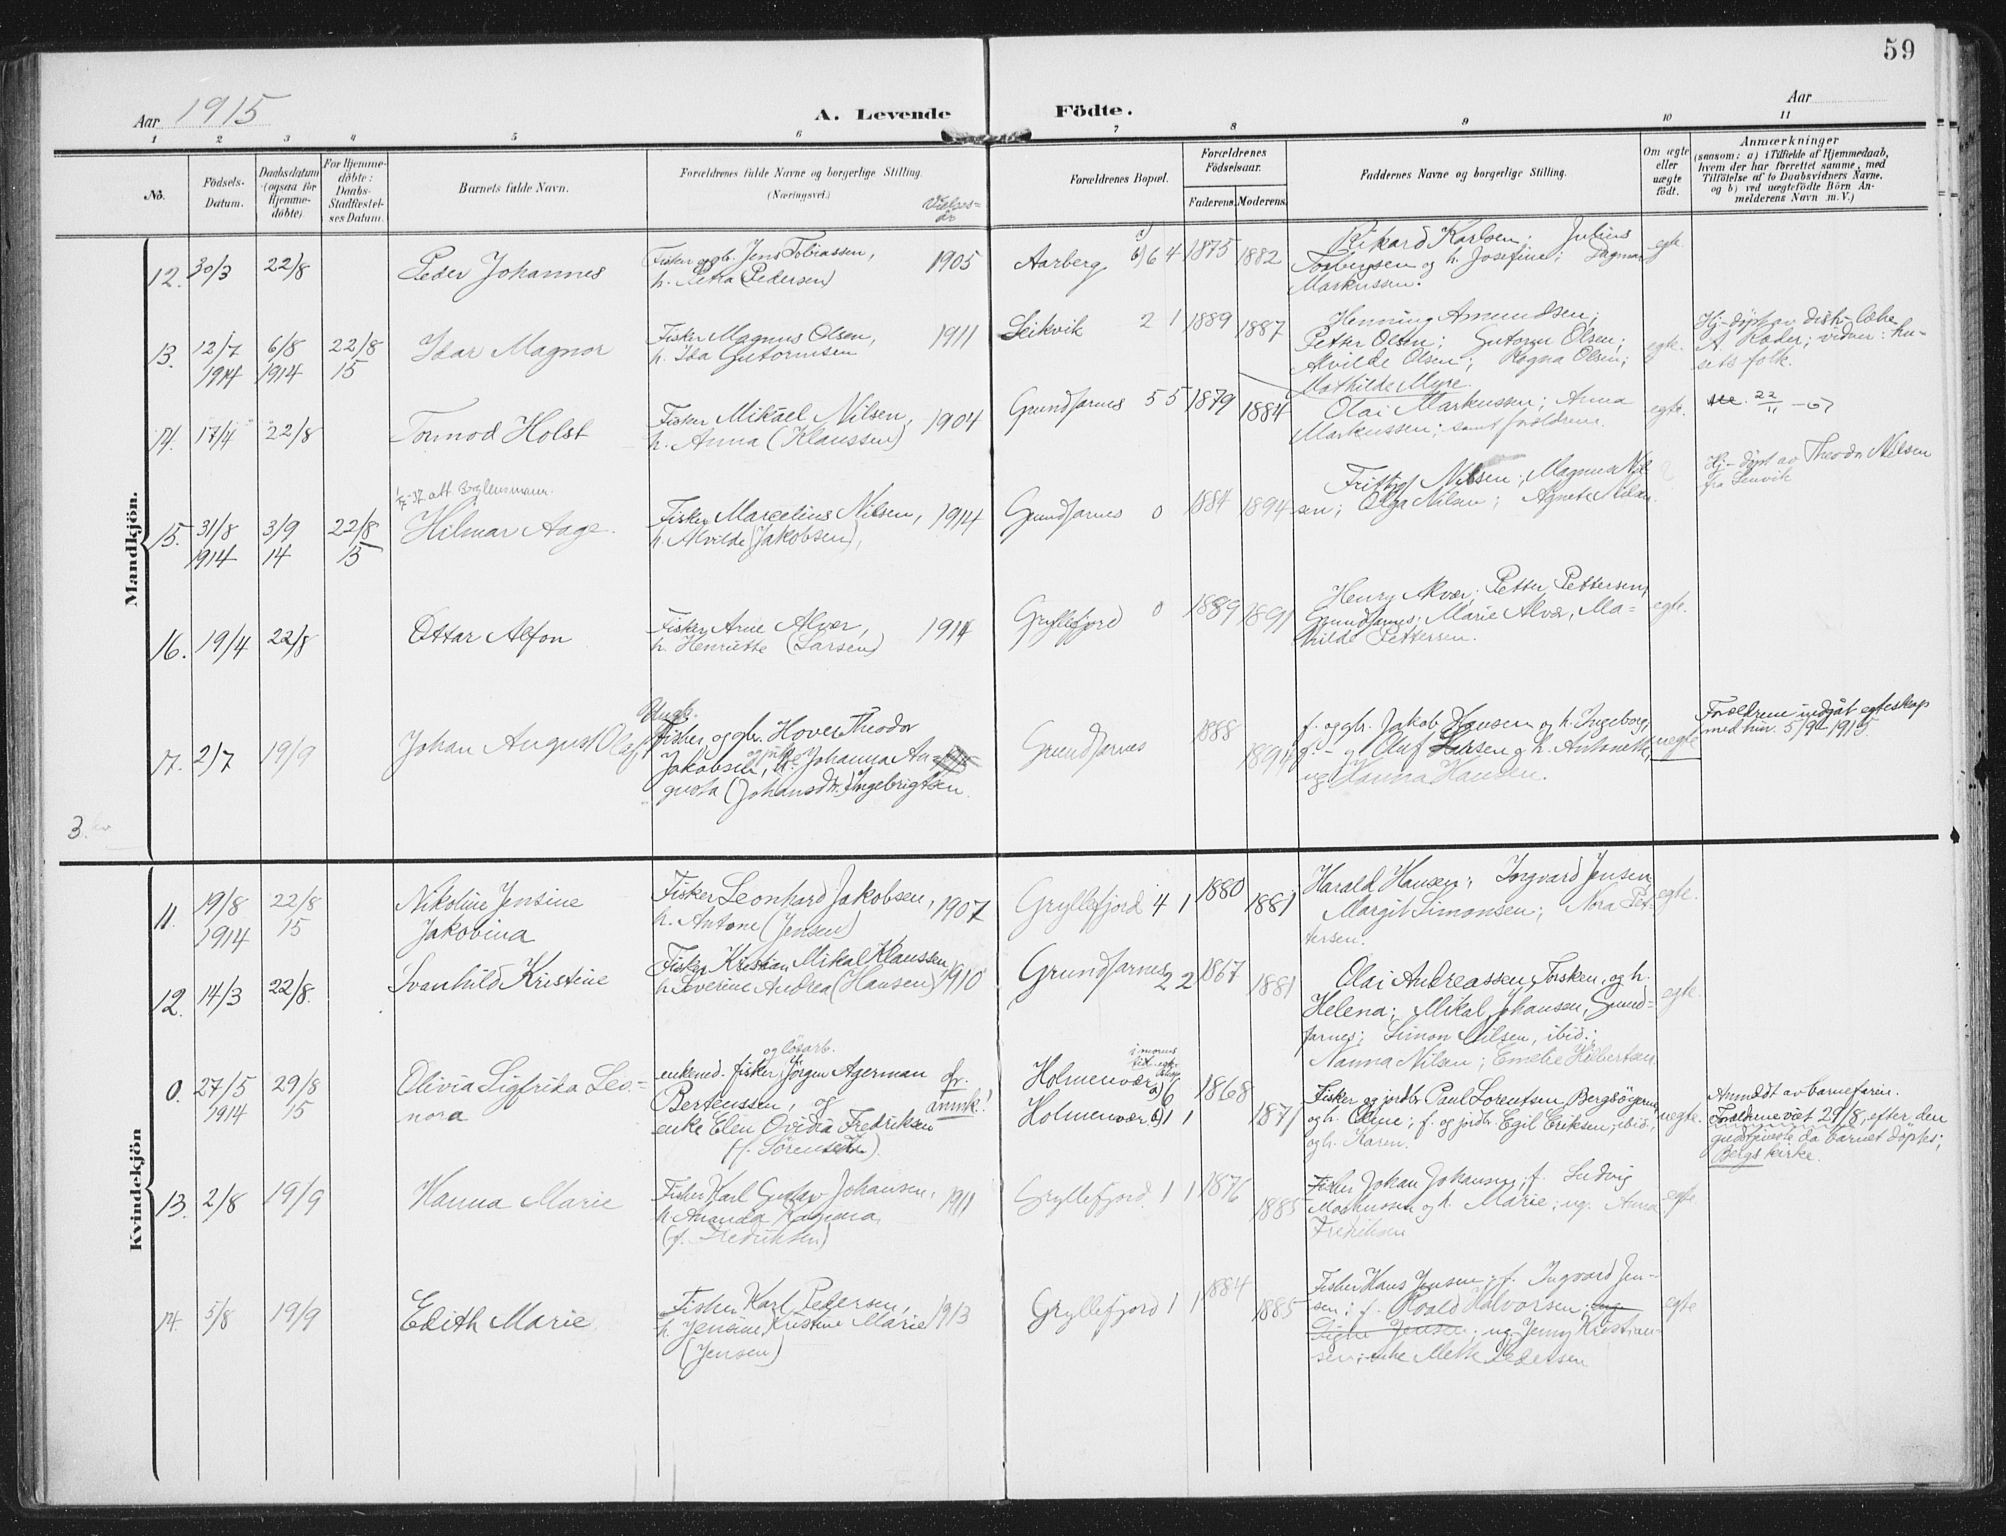 59
Aar 1915
A. Levende Födte.
Aar
1 2 3 4 5 6 7 8 9 10 11
No.
Födsels-Datum.
Daabsdatum (ogsaa for Hjemme-döbte).
For Hjemme-döbte: Daabs-Stadfestel-ses Datum.
Barnets fulde Navn.
Forældrenes fulde Navne og borgerlige Stilling.
(Næringsvei.)
Vielses-år
Forældrenes Bopæl.
Forældrenes Födselsaar.
Faderens. Moderens.
Faddernes Navne og borgerlige Stilling.
Om ægte eller uægte födt.
Anmærkninger
(saasom: a) i Tilfælde af Hjemmedaab, hvem der har forrettet samme, med Tilföielse af to Daabsvidners Navne, og b) ved uægtefödte Börn An-melderens Navn m. V.)
Mandkjön.
12. 30/3 22/8 Peder Johannes
Fisker og gb. Jens Tobiassen,
h. Petra (Pedersen)
1905 Aarberg 6 4 1875 1882
Rikard Karlsen; Julius
Torbergsen og h. Josefine; Dagmar
Markussen.
egte
13. 12/7 1914 6/8 1914 22/8 15 Idar Magnor
Fisker Magnus Olsen,
h. Ida Gutormsen
1911 Leikvik 2 1 1889 1887
Henning Amundsen;
Petter Olsen; Gutorm Olsen;
Alvilde Olsen; Ragna Olsen;
Mathilde Myre.
egte.
Hj-döpt av distr. læke
A. Roder; vidner: hu-
sets folk.
14. 17/4 22/8 Tormod Holst
Fisker Mikael Nilsen,
h. Anna (Klaussen)
1904 Grundfarnes 5 5 1879 1884
Olai Markussen; Anna
Markussen; samt forældrene.
egte.
22/11
1/7-37 att.
15. 31/8 1914 3/9 14 22/8 15 Hilmar Aage
Fisker Marcelius Nilsen,
h. Alvilde (Jakobsen),
1914 Grundfarnes 0 1884 1894
Fritjof Nilsen; Magnus Nil-
sen; Olga Nilsen; Agnete Nilsen
Hj-döpt av Theodor Nilsen
fra Lenvik
16. 19/4 22/8 Ottar Alfon
Fisker Arne Alvær,
h. Henriette (Larsen)
1914 Gryllefjord 0 1889 1891
Henry Alvær; Petter Pettersen,
Grundfarnes; Marie Alvær, Ma-
thilde Pettersen.
egte.
17. 2/7 19/9 Johan August Olaf
Ungk.
Fisker og gb. Hover Theodor
Jakobsen, og pike Johanna Au-
gusta (Johansdtr.) Ingebrigtsen
Grundfarnes 1888 1894
f. og gb. Jakob Hansen og h. Ingeborg,
g. - g Olaf Larsen og h. Antonette,
ug Hanna Hansen.
uegte
Forældrene indgåt egteskap
med hin. 5/9 1915.
3.
Kvindekjön
11. 19/8 1914 22/8 15 Nikoline Jensine
Jakobina
Fisker Leonhard Jakobsen,
h. Antone (Jensen)
1907 Gryllefjord 4 1 1880 1881
Harald Hansen; Ingvard Jensen
Margit Simonsen; Nora Pet-
tersen.
egte.
12. 14/3 22/8. Svanhild Kristine
Fisker Kristian Mikal Klaussen,
h. Severine Andrea (Hansen)
1910 Grundfarnes 2 2 1867 1881
Olai Andreassen, Torsken, og h.
Helena; Mikal Johansen, Grund-
farnes; Simon Nilsen, ibid.;
Nanna Nilsen; Emelie Hilbertsen
egte.
0. 27/5 1914 29/8 15 Olivia Sigfrika Leo-
nora
og lösarb.
enkemd. fisker Jörgen Agerman
Bertenssen, og
enke Elen Ovidia Fredriksen
(f. Sörensen).
cfr. anmk!
Holmenvær a) 6
Holmenvær b) 1 1
1868 1871
Fisker og jordb. Paul Lorentsen, Bergsöyerne,
og h. Oline; f. og jordb. Egil Eriksen, ibid.,
og h. Karen.
uegte.
Anmeldt av barnefaren.
Forældrene viet 29/8, efter den
gudstjeneste da barnet döptes;
Bergs kirke.
13. 2/8 19/9 Hanna Marie
Fisker Karl Gustav Johansen,
h. Amanda Ragna
(f. Fredriksen)
1911 Gryllefjord 1 1 1876 1885
Fisker Johan Johansen, f. Ludvig
Markussen og h. Marie; ug. Anna
Fredriksen
egte
14. 5/8 19/9 Edith Marie
Fisker Karl Pedersen,
h. Jensine Kristine Marie
(Jensen)
1913 Gryllefjord 1 1 1884 1885
Fisker Hans Jensen; f. Ingvard Jen-
sen; f. Roald Halvorsen; ug.
Signe Jensen; ug Jenny Kristian-
sen; enke Mette Pedersen
egte